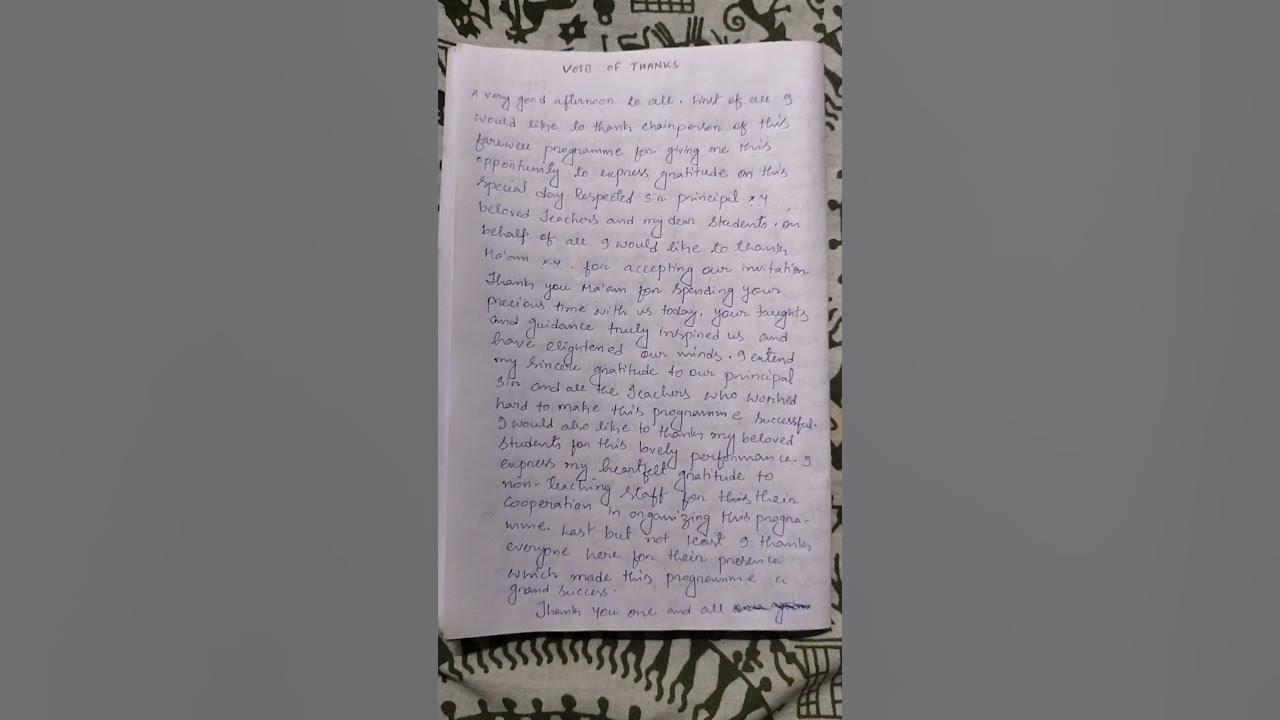 VOTE OF THANKS
A very good afternoon to all. First of all I
would like to thank chairperson of this
farewell programme for giving me this
opportunity to express gratitude on this
special day. Respected Sir principal x.y....,
beloved Teachers and my dear students. on
behalf of all I would like to thank
Ma'am x.y. for accepting our invitation.
Thank you Ma'am for spending your
precious time with us today. your taughts
and guidance truly inspired us and
have elightened our minds. I extend
my sincere gratitude to our principal
Sir and all the Teachers who worked
hard to make this programme successful.
I would also like to thank my beloved
students for this lovely performance. I
express my heartfelt gratitude to
non-teaching staff for their
cooperation in organizing this progra-
mme. Last but not least I thank
everyone here for their presence
which made this programme a
grand success.
Thank you one and all